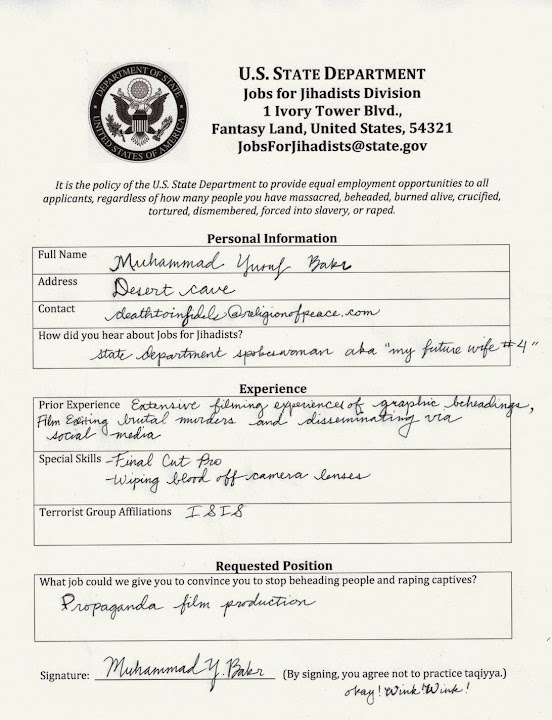 DEPARTMENT OF STATE
UNITED STATES OF AMERICA
U.S. STATE DEPARTMENT
Jobs for Jihadists Division
1 Ivory Tower Blvd.,
Fantasy Land, United States, 54321
JobsForJihadists@state.gov
It is the policy of the U.S. State Department to provide equal employment opportunities to all
applicants, regardless of how many people you have massacred, beheaded, burned alive, crucified,
tortured, dismembered, forced into slavery, or raped.
Personal Information
Full Name Muhammad Yusuf Bakr
Address Desert cave
Contact deathtoinfidels@religionofpeace.com
How did you hear about Jobs for Jihadists?
state department spokeswoman aka "my future wife #4"
Experience
Prior Experience Extensive filming experiences of graphic beheadings,
Film Editing brutal murders and disseminating via
social media
Special Skills -Final Cut Pro
-Wiping blood off camera lenses
Terrorist Group Affiliations ISIS
Requested Position
What job could we give you to convince you to stop beheading people and raping captives?
Propaganda film production
Signature: Muhammad Y. Bakr (By signing, you agree not to practice taqiyya.)
okay! Wink! Wink!